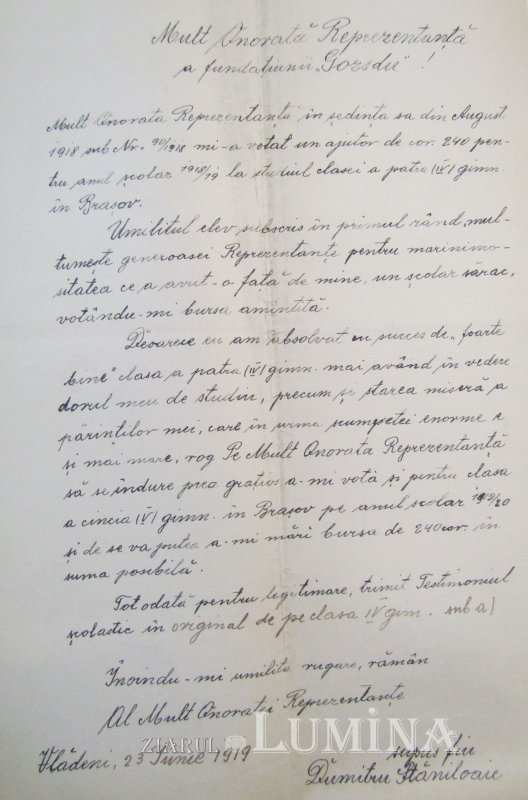 Mult Onorată Reprezentanță
a fundațiunii „Gozsdu"!
Mult Onorata Reprezentanță în ședința sa din August
1918 sub Nr. 90/1918 mi-a votat un ajutor de cor. 240 pen-
tru anul școlar 1918/19 la studiul clasei a patra (IV) gimn.
în Brașov.
Umilitul elev subscris în primul rând, mul-
țumește generoasei Reprezentanțe pentru marinimo-
sitatea ce a avut-o față de mine, un școlar sărac,
votându-mi bursa amintită.
Deoarece eu am absolvat cu succes de „foarte
bine" clasa a patra (IV) gimn. mai având în vedere
dorul meu de studiu, precum și starea miseră a
părinților mei, care în urma scumpetei enorme e
și mai mare, rog Pe Mult Onorata Reprezentanță
să se îndure prea grațios a-mi votá și pentru clasa
a cincia (V) gimn. în Brașov pe anul școlar 1919/20
și de se va putea a-mi mări bursa de 240 cor. în
suma posibilă.
Tot odată pentru legitimare, trimit Testimoniul
școlastic în original de pe clasa IV gim. sub a)
Înoindu-mi umilita rugare, rămân
Al Mult Onoratei Reprezentanțe
supus fiu
Vlădeni, 23 Iunie 1919
Dumitru Stăniloaie
ZIARUL LUMINA